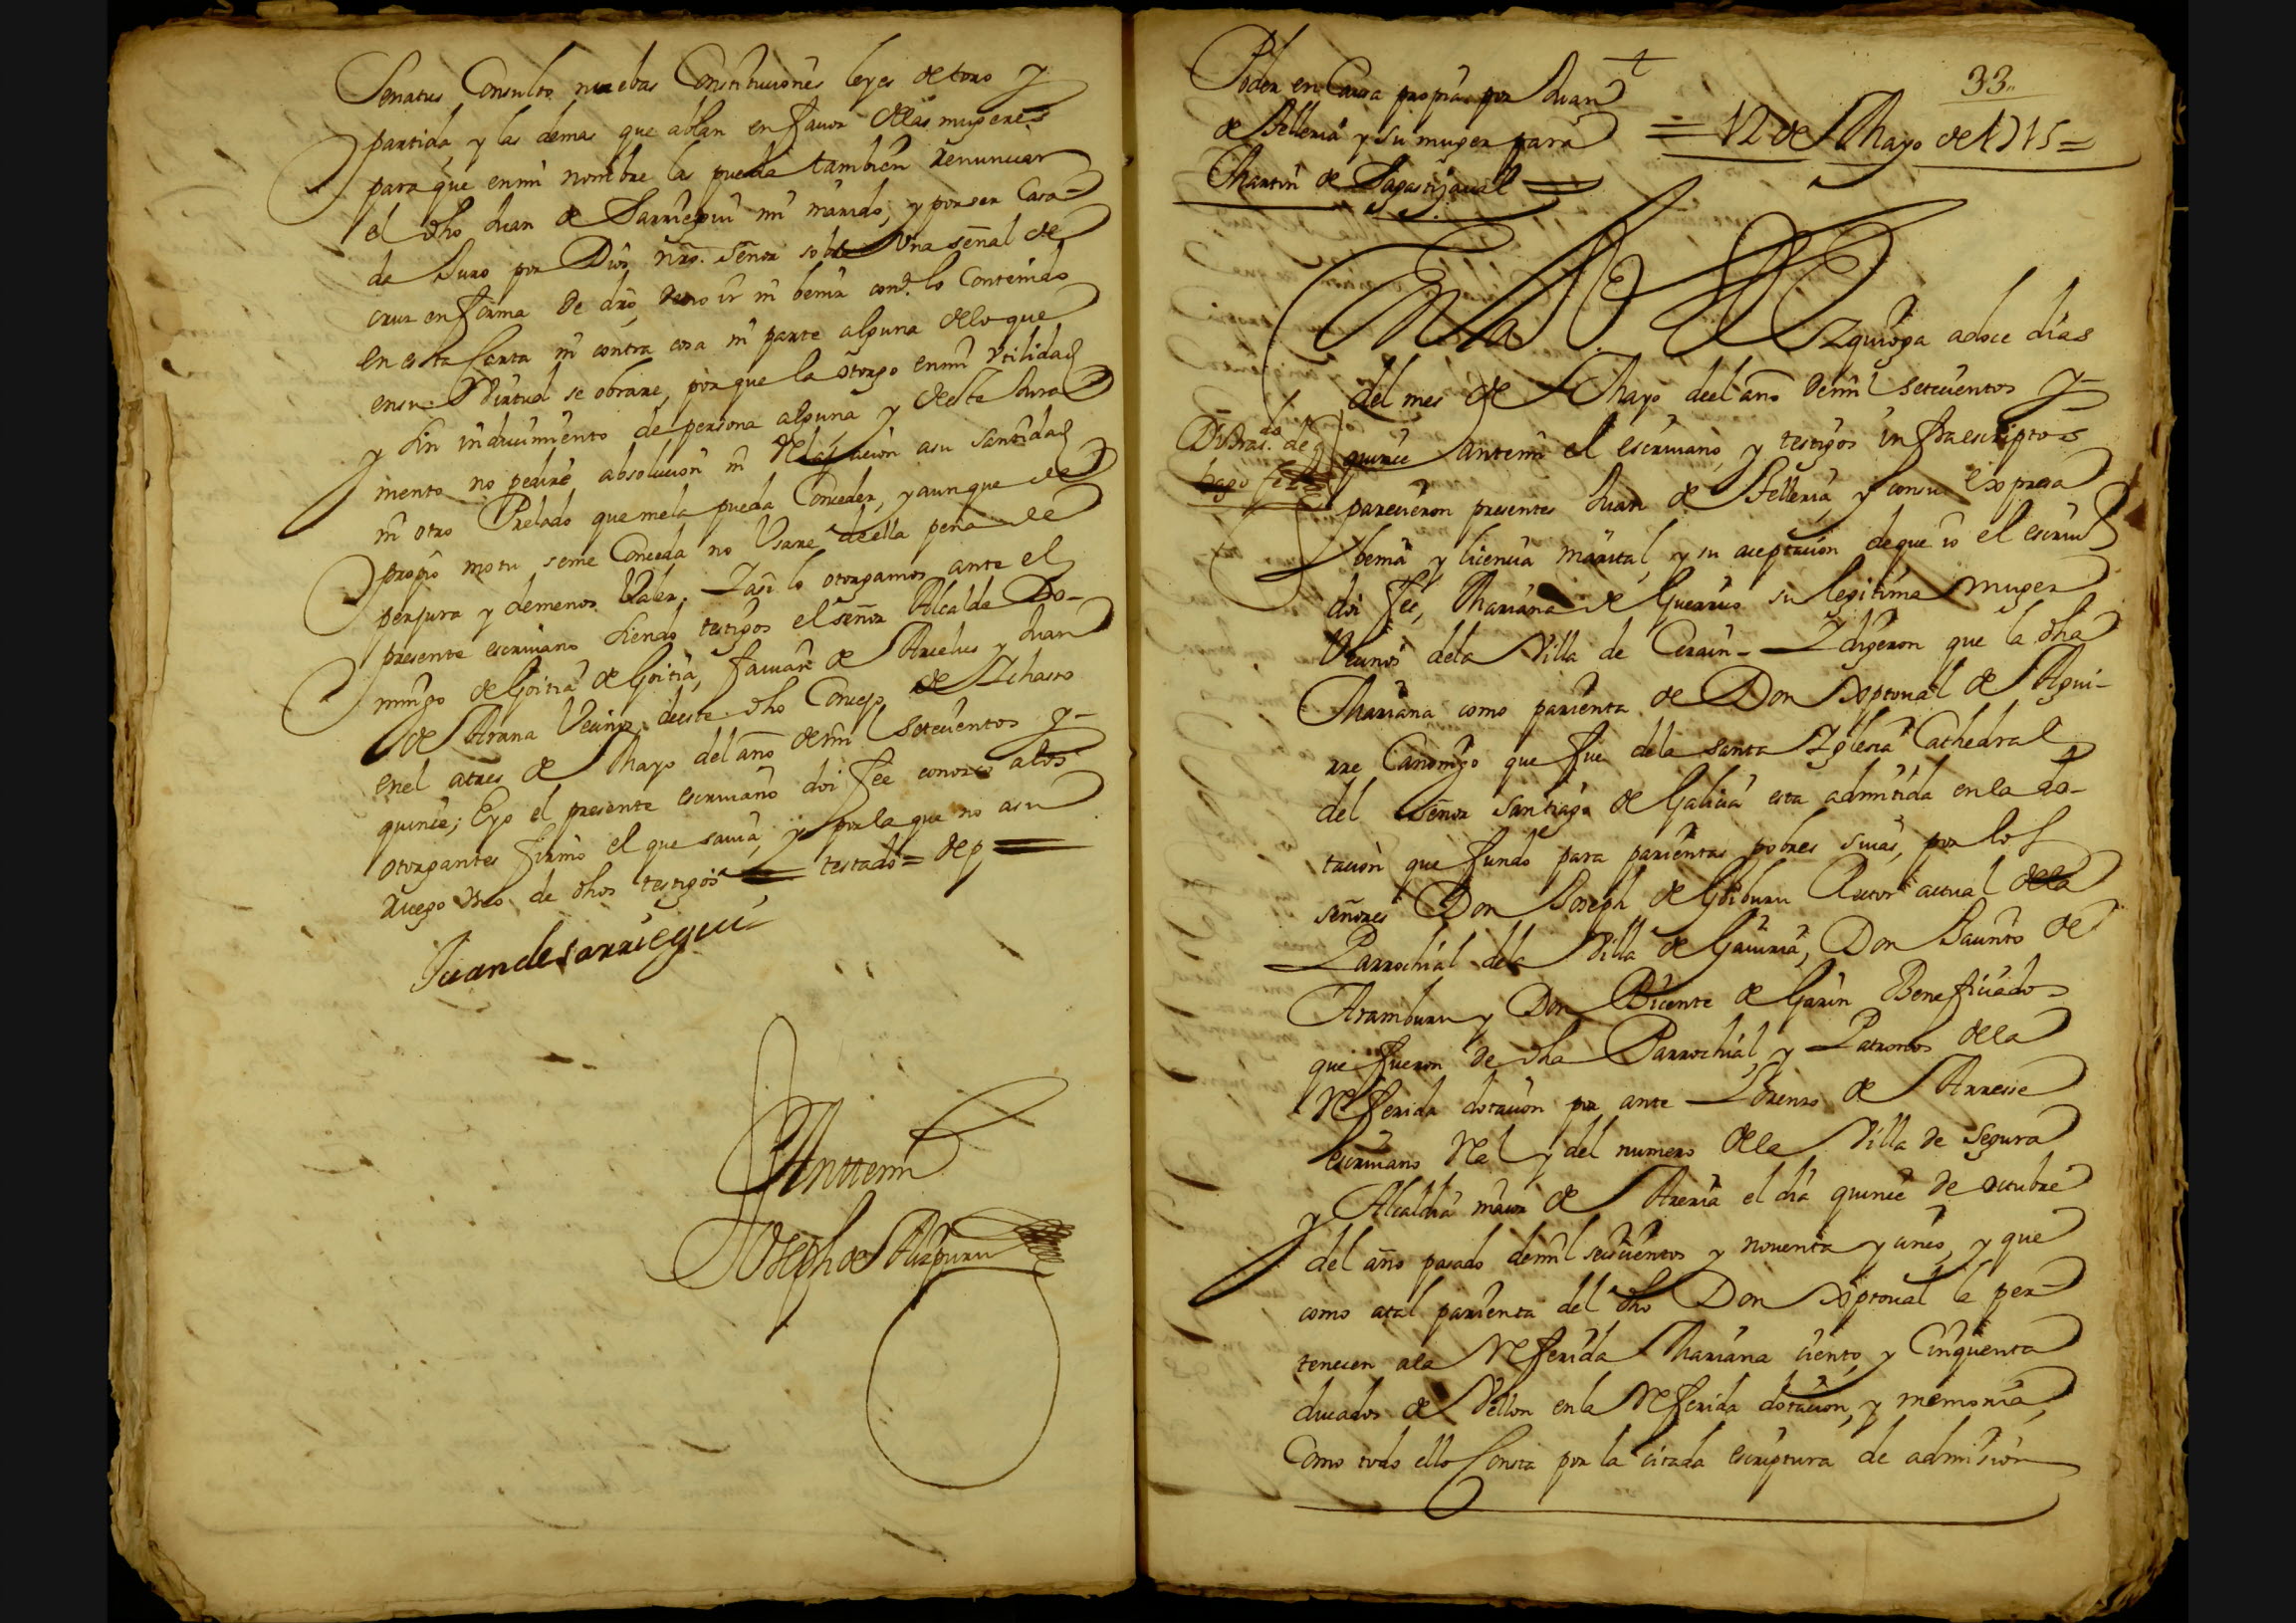 Senatus Consulto nuebas Constituciones leyes de toro y
partida, y las demas que ablan en fauor delas mugeres
para que en mi nombre las pueda tambien renunciar
el dho Juan de Sarriegui mi marido, y por ser Casa-
da Juro por Dios nro. Señor sobre Una señal de
cruz en forma de dro, de no ir ni benir contra lo Contenido
en esta Carta ni contra cosa ni parte alguna delo que
en su Virtud se obrare, porque la otorgo en mi Vtilidad
y sin inducimiento de persona alguna y deste Jura
mento no pedire absolucion ni relaxacion a su santidad
ni otro Prelado que mela pueda Conceder, y aunque de
propio motu se me Conceda no Usare de ella pena de
perjura y de menos Valer. Y asi lo otorgamos ante el
presente escriuano siendo testigos el señor Alcalde Do-
mingo de Goitia de Goitia, Francisco de Arcelus y Juan
de Arana Vecinos de este dho Concejo de Ichasso
en el a tres de Mayo del año de mil setecientos y
quince; E yo el presente escriuano doi fee conozco alos
otorgantes firmo el que sauia, y por la que no a su
ruego Vno de dhos testigos = testado = de p =
Juan de sarriegui
Ante mi
Joseph de Aizpuru
33
Poder en Causa propia por Juan
de Telleria y su muger para
Martin de Sagastizaual
= 12 de Mayo de 1715 =
En la V.ª de Zquioga a doce dias
del mes de Mayo del año de mil setecientos y
quince ante mi el escriuano, y testigos infraescriptos
parecieron presentes Juan de Telleria, y con su expresa
benia y licencia marital, y su aceptacion de que io el escriuº
doi fee, Mariana de Guerrico su legitima muger
Vecinos dela Villa de Cerain - Y digeron que la dha
Mariana como parienta de Don Xptoual de Agui-
rre Canonigo que fue dela santa Yglesia Cathedral
del señor santiago de Galicia esta admitida en la do-
tacion que fundo para parientas pobres suias, por los
señores Don Joseph de Goiburu Rector actual dela
Parrochial dela Villa de Gauiria, Don Jacinto de
Aramburu y Don Vicente de Garin Beneficiados
que fueron de dha Parrochial, y Patronos dela
referida dotacion por ante Lorenzo de Arrese
escriuano Real y del numero dela Villa de Segura
y Alcaldia maior de Areria el dia quince de octubre
del año pasado de mil seiscientos y nouenta y cinco, y que
como a tal parienta del dho Don Xptoual le per
tenecen ala referida Mariana ciento y Cinquenta
ducados de Vellon en la referida dotacion, y memoria,
Como todo ello Consta por la citada escriptura de admision